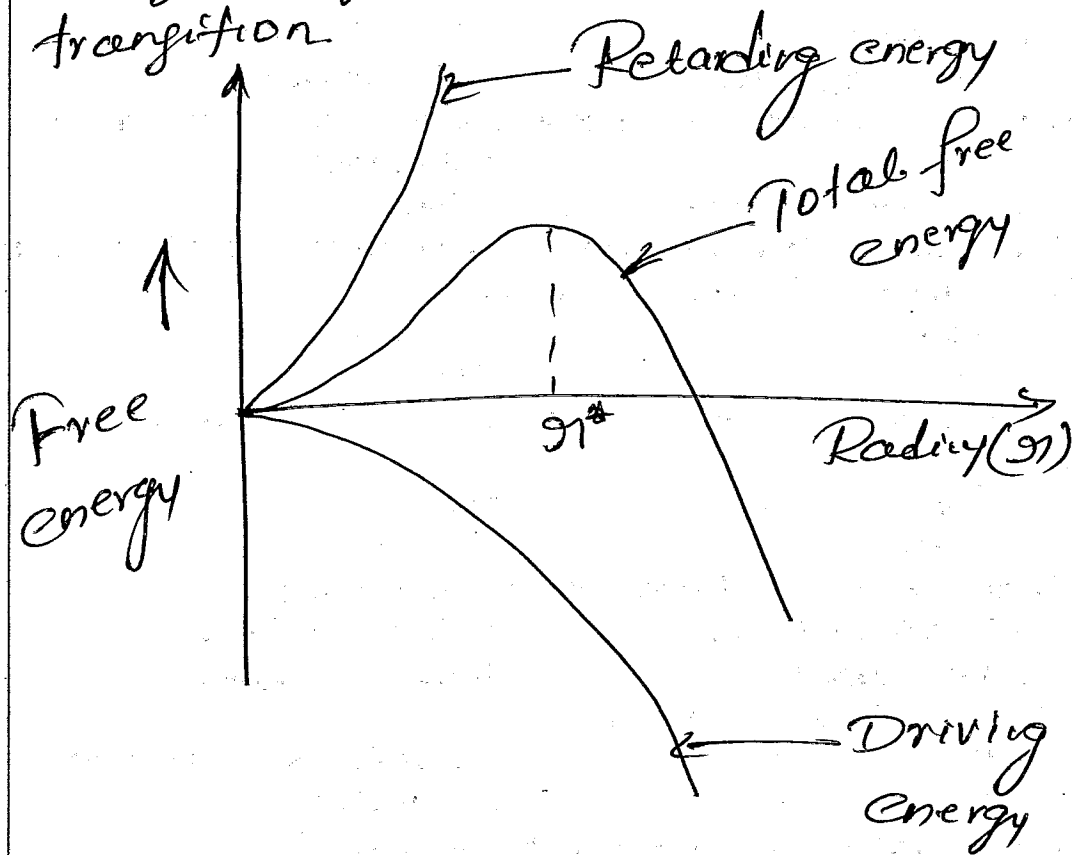 transition
Retarding energy
Total free
energy
Free
energy
r*
Radius(r)
Driving
energy